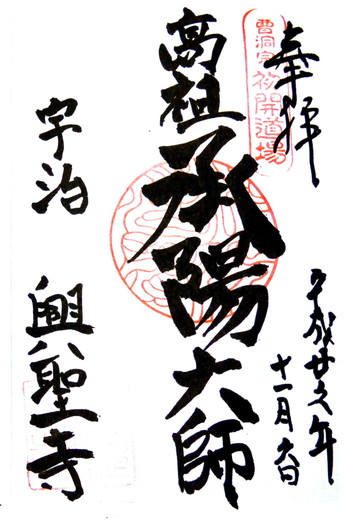 奉拝
曹洞宗
初開道場
平成廿年
十一月六日
高祖承陽大師
宇治
興聖寺